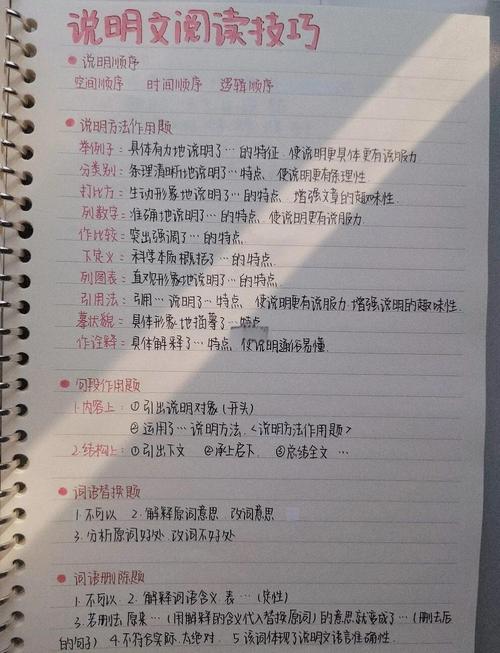 说明文阅读技巧
● 说明顺序
空间顺序 时间顺序 逻辑顺序
● 说明方法作用题
举例子：具体有力地说明了…的特征，使说明更具体更有说服力
分类别：条理清晰地说明了…特点，使说明更有条理性.
打比方：生动形象地说明了…的特点，增强文章的趣味性.
列数字：准确地说明了…的特点，使说明更有说服力.
作比较：突出强调了…的特点.
下定义：科学本质概括了…的特点.
列图表：直观形象地说明了…的特点.
引用法：引用…说明了…特点，使说明更有说服力，增强说明的趣味性.
摹状貌：具体形象地描摹了…特点
作诠释：具体解释了…特点，使说明通俗易懂.
● 句段作用题
1.内容上：①引出说明对象(开头)
②运用了…说明方法.<说明方法作用题>
2.结构上：①引出下文 ②承上启下 ③总结全文 …
● 词语替换题
1.不可以 2.解释原词意思，改词意思
3.分析原词好处，改词不好处
● 词语删除题
1.不可以. 2.解释词语含义，表…(性)
3.若删去，原来…(用解释的含义代入替换原词)的意思就变成了…(删去后
的句子) 4.不符合实际，太绝对. 5.该词体现了说明文语言准确性.